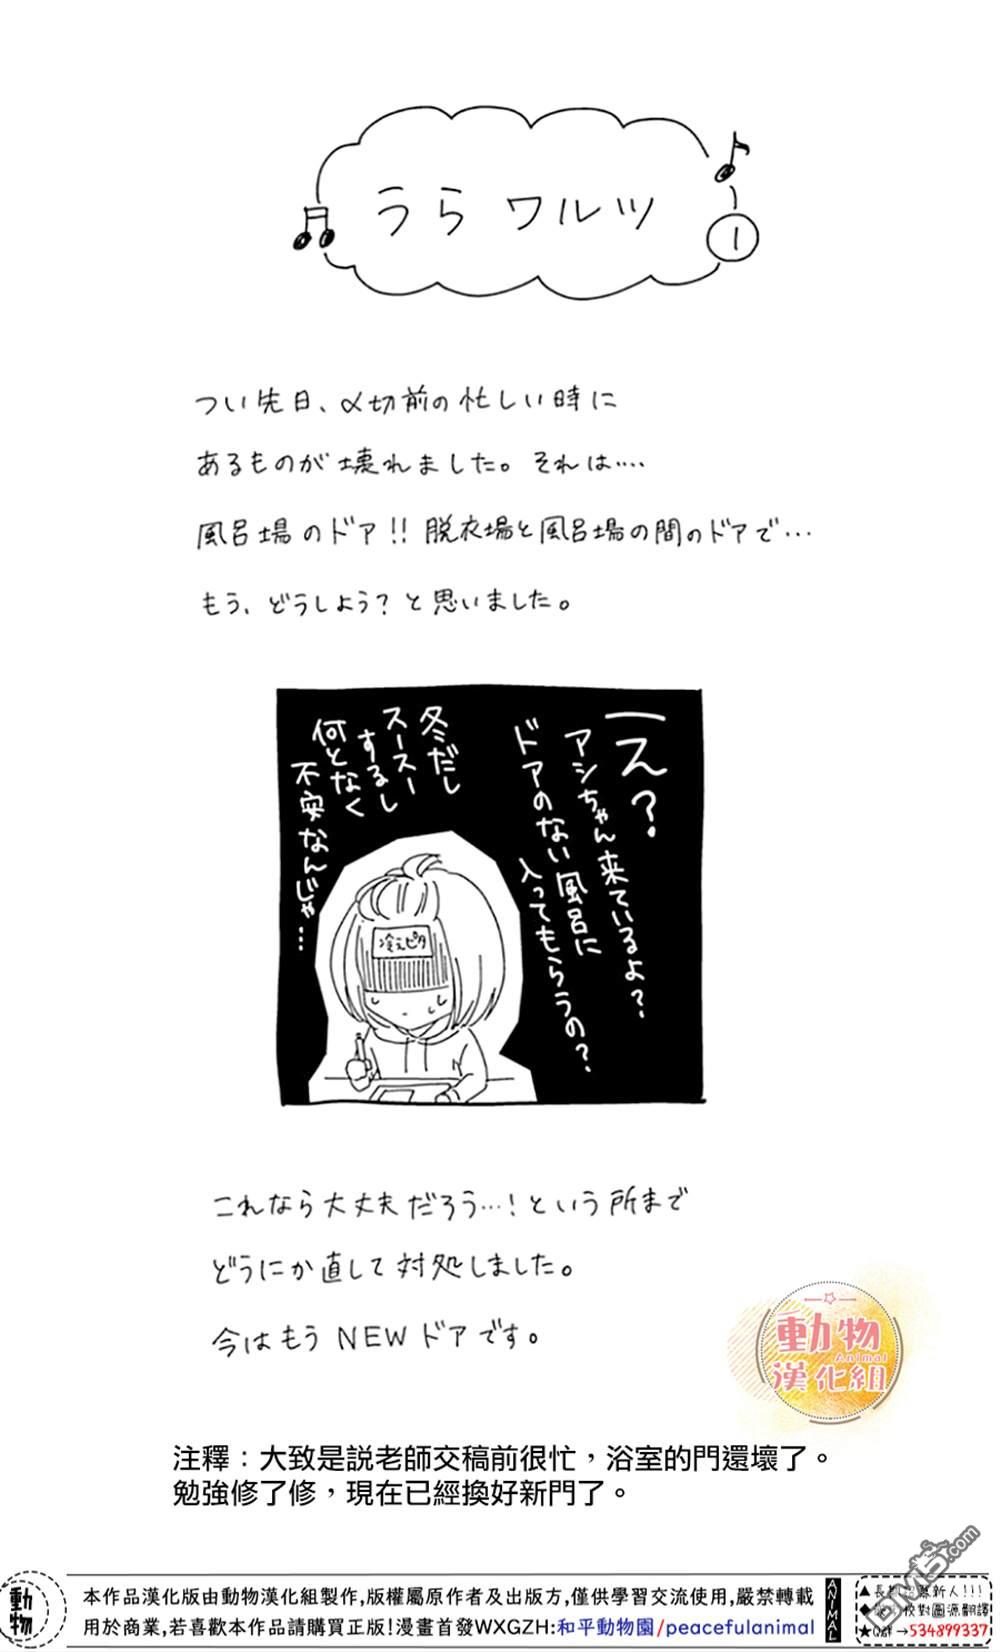 うらワルツ
1
つい先日、〆切前の忙しい時に
あるものが壊れました。それは‥‥
風呂場のドア!! 脱衣場と風呂場の間のドアで…
もう、どうしよう?と思いました。
―え?
アシちゃん来ているよ?
ドアのない風呂に
入ってもらうの?
冬だし
スースー
するし
何となく
不安なんじゃ…
冷えピタ
これなら大丈夫だろう…!という所まで
どうにか直して対処しました。
今はもうNEWドアです。
動物
Animal
漢化組
注釋：大致是説老師交稿前很忙，浴室的門還壞了。
勉強修了修，現在已經換好新門了。
動物
本作品漢化版由動物漢化組製作,版權屬原作者及出版方,僅供學習交流使用,嚴禁轉載
用於商業,若喜歡本作品請購買正版!漫畫首發WXGZH:和平動物園/peacefulanimal
ANIMAL
▲長期招募新人!!!
校對圖源翻譯
★Q群→534899337